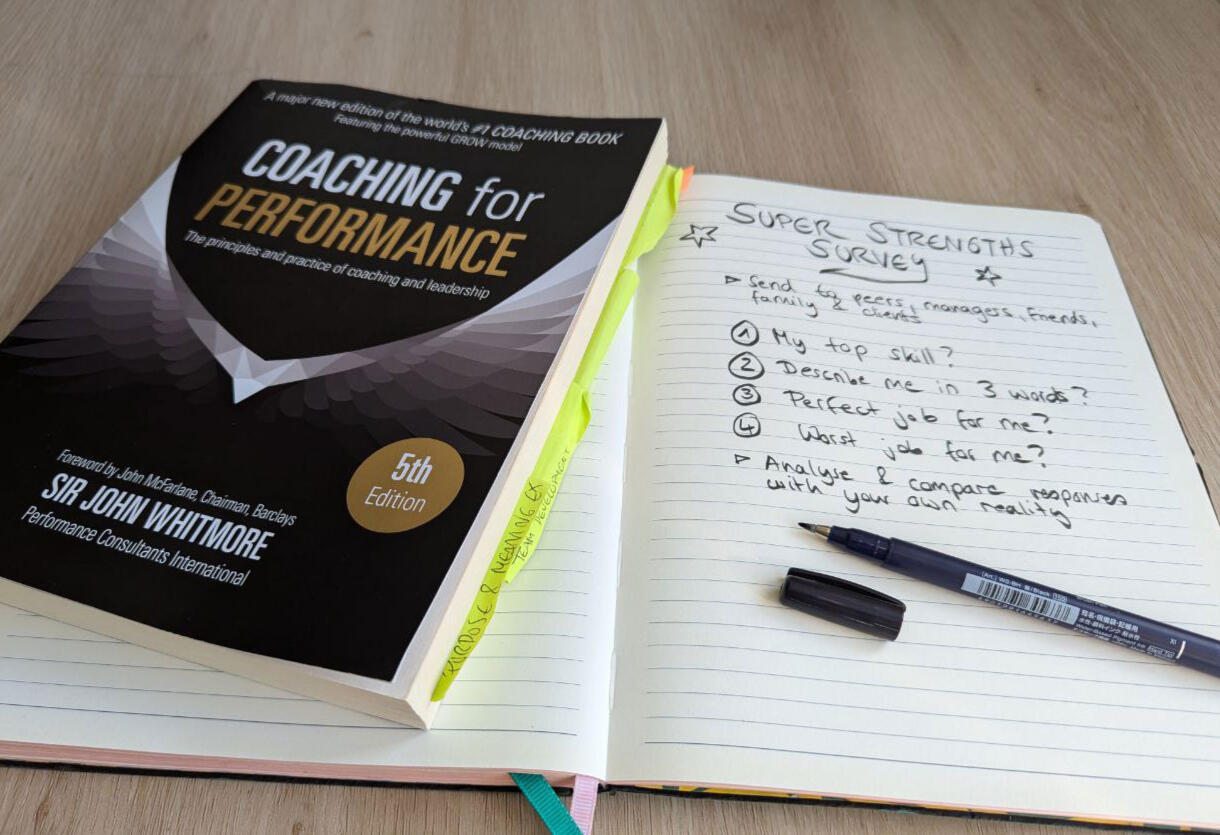 A major new edition of the world's #1 COACHING BOOK
Featuring the powerful GROW model
COACHING for
PERFORMANCE
The principles and practice of coaching and leadership
5th
Edition
Foreword by John McFarlane, Chairman, Barclays
SIR JOHN WHITMORE
Performance Consultants International
PURPOSE & MEANING EX
TEAM DEVELOPMENT
SUPER STRENGTHS
SURVEY
Send to peers, managers, friends,
family & clients
1 My top skill?
2 Describe me in 3 words?
3 Perfect job for me?
4 Worst job for me?
Analyse & compare responses
with your own reality